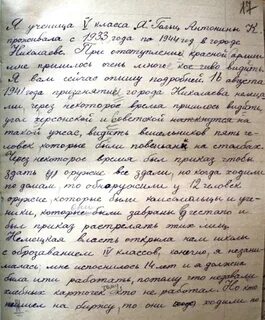 17
Я ученица V класса "А" Гольц Антонины К.
проживала с 1933 года по 1944 год в городе
Николаеве. При отступлении красной армии
мне пришлось очень много кое чего видеть.
Я вам сейчас опишу подробней. 16 августа
1941 года при занятии города Николаева немца
ми, через некоторое время пришлось видеть,
угол херсонской и
такой ужас, видеть висельников пять че-
ловек которые были повешены на столбах.
Через некоторое время был приказ чтобы
здать оружие все здали, но когда ходили
по домам, то обнаружили у 12 человек
оружие, которые были комсомольцы и уче-
ники, которые были забраны в гестапо и
был приказ растрелять этих лиц.
Немецкая власть открыла нам школы
с образованием IV классов, конечно, я незани-
малась, мне исполнилось 14 лет и я должна
была ити работать, потому что недавали
хлебных карточек кто не работал. Но кто
на биржу, то они ходили по